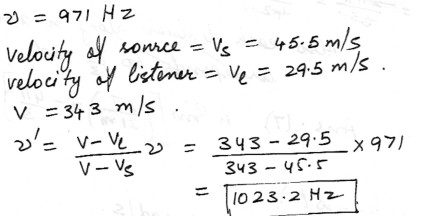 ν = 971 Hz
Velocity of source = Vs = 45.5 m/s
velocity of listener = Vℓ = 29.5 m/s .
V = 343 m/s .
ν' = (V - Vℓ)/(V - Vs) ν = (343 - 29.5)/(343 - 45.5) × 971
= 1023.2 Hz